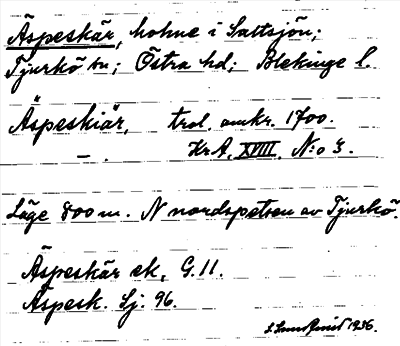 Äspeskär, holme i Saltsjön;
Tjurkö sn; Östra hd; Blekinge l.
Äspeskiär, trol. omkr. 1700.
— . Kr A, XVIII, N:o 3.
Läge 800 m. N nordspetsen av Tjurkö.
Äspeskär ek, G. 11.
Äspesk. Sj. 96.
1936.